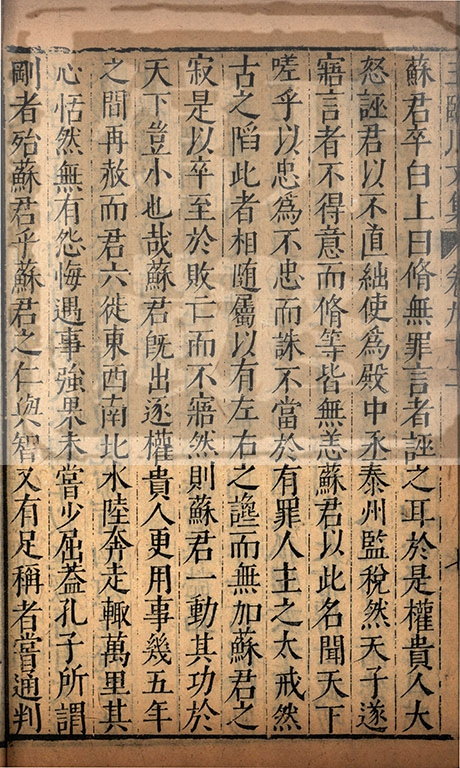 王臨川文集 卷九十二
蘇君卒白上曰脩無罪言者誣之耳於是權貴人大
怒誣君以不直絀使為殿中丞泰州監稅然天子遂
寤言者不得意而脩等皆無恙蘇君以此名聞天下
嗟乎以忠為不忠而誅不當於有罪人主之大戒然
古之陷此者相随屬以有左右之讒而無加蘇君之
寂是以卒至於敗亡而不寤然則蘇君一動其功於
天下豈小也哉蘇君旣出逐權貴人更用事幾五年
之間再赦而君六徙東西南北水陸奔走輙萬里其
心恬然無有怨悔遇事強果未嘗少屈葢孔子所謂
剛者殆蘇君乎蘇君之仁與智又有足稱者嘗通判